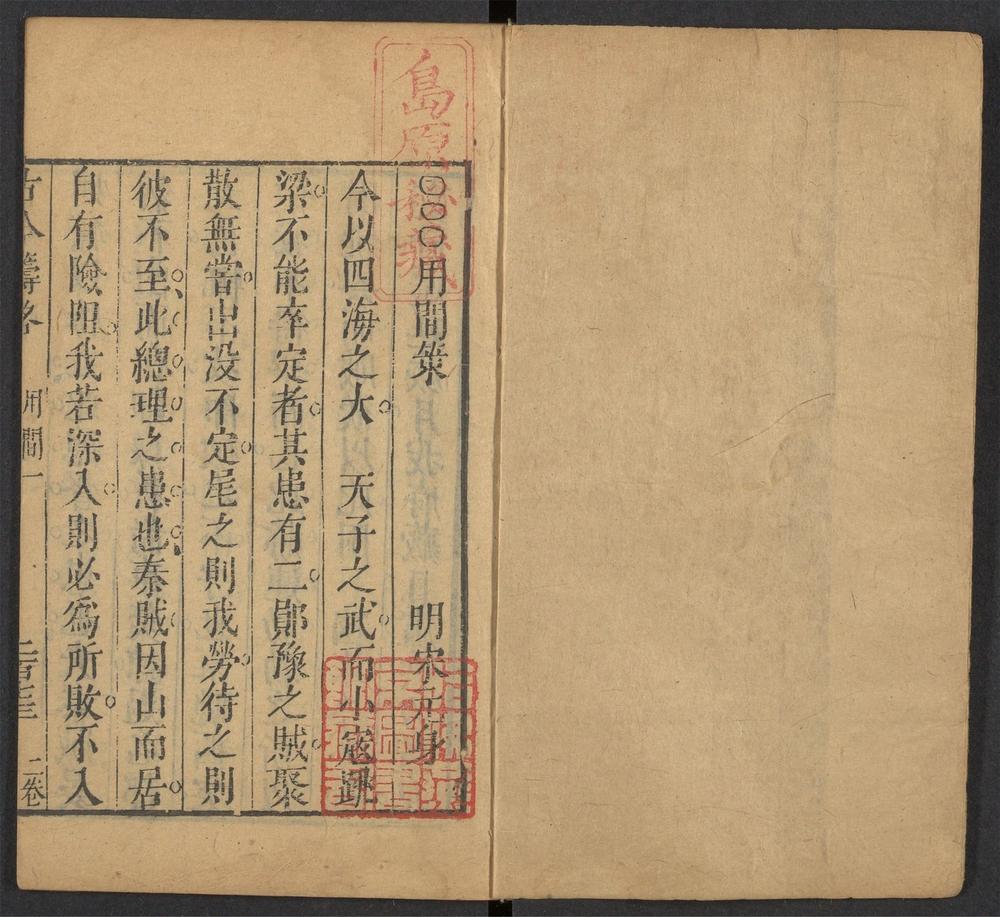 島原秘藏
〇〇〇用間策　明宋元身
今以四海之大　天子之武而小寇跳
梁不能卒定者其患有二鄖豫之賊聚
散無嘗出没不定尾之則我勞待之則
彼不至此總理之患也秦賊因山而居
自有險阻我若深入則必爲所敗不入
用間一
二卷